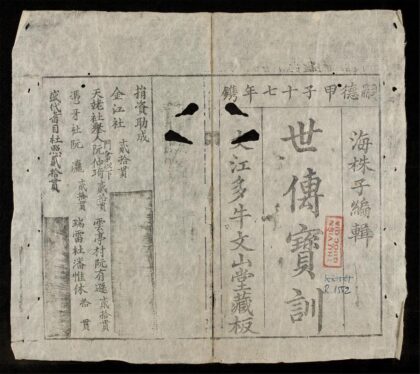 嗣德甲子十七年鐫
海株子編輯
世傳寶訓
文江多牛文山堂藏板
捐資助成
金江社 貳拾貫
天姥社舉人阮仲琦 貳拾貫 雲亭村阮有選 貳拾貫
馮牙社阮 貳拾貫 瑞雷社潘惟休 拾貫
盛代省目社照貳拾貫